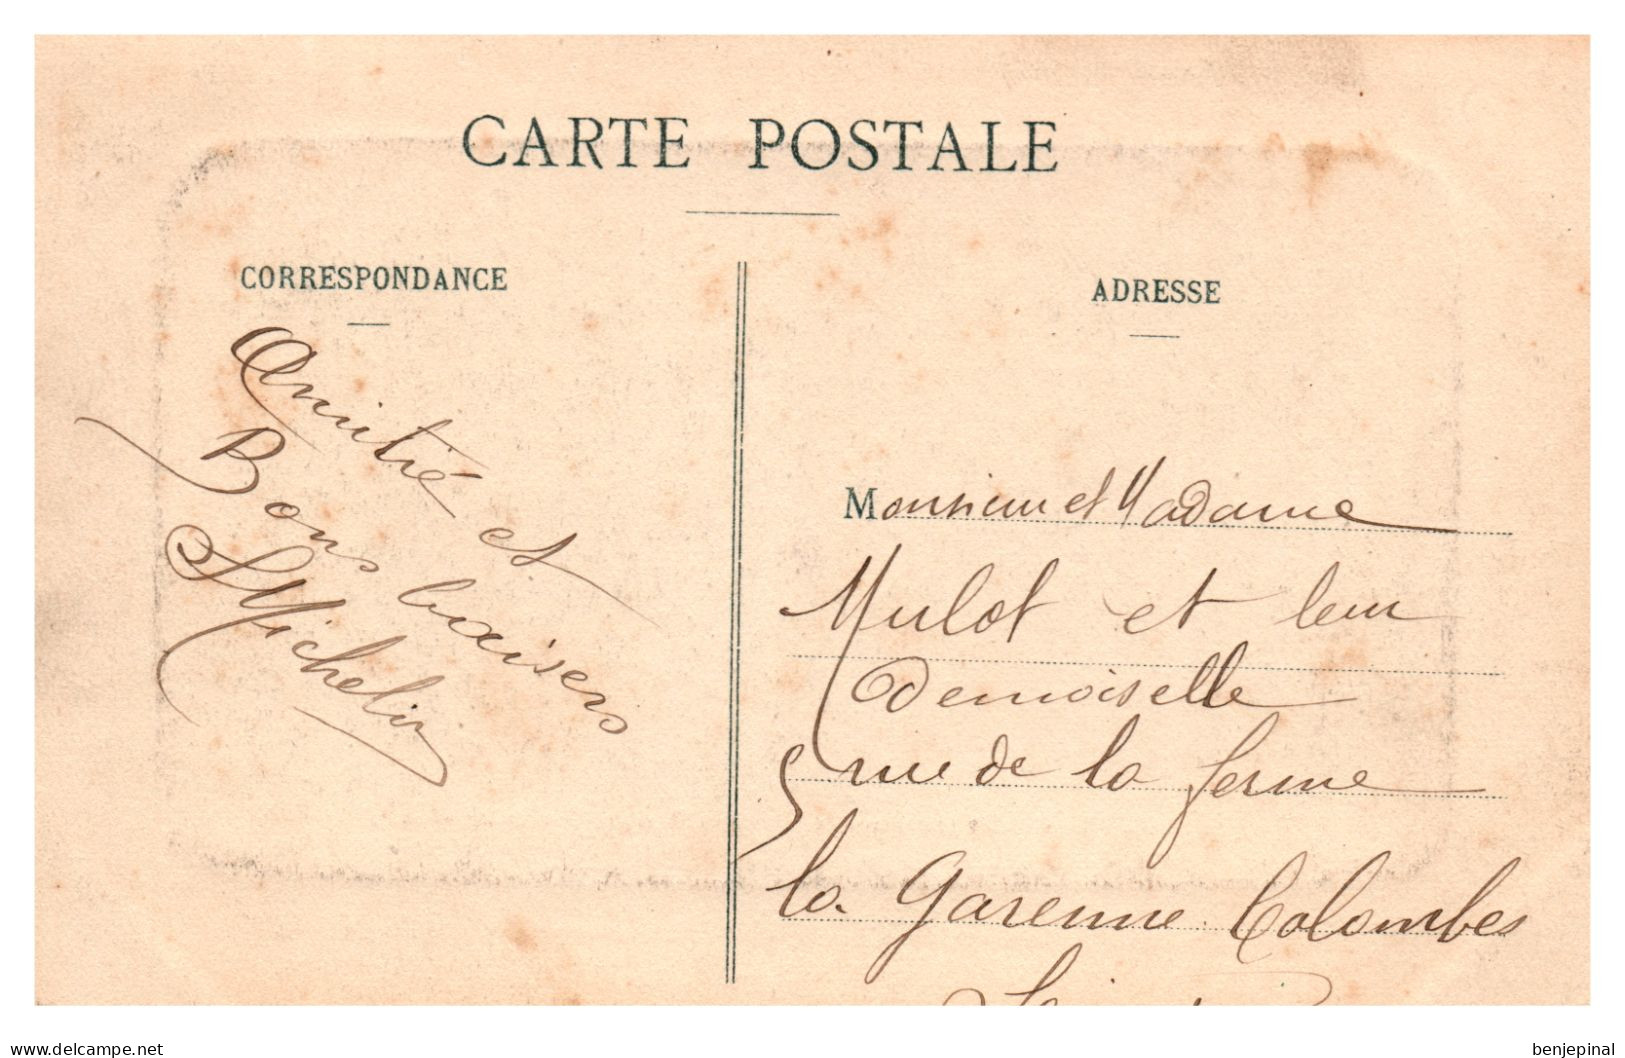 CARTE POSTALE
CORRESPONDANCE
Amitié et
Bons baisers
Michelin
ADRESSE
Monsieur et Madame
Mulot et leur
Demoiselle
5 rue de la ferme
la Garenne Colombes
delcampe.net
benjepinal